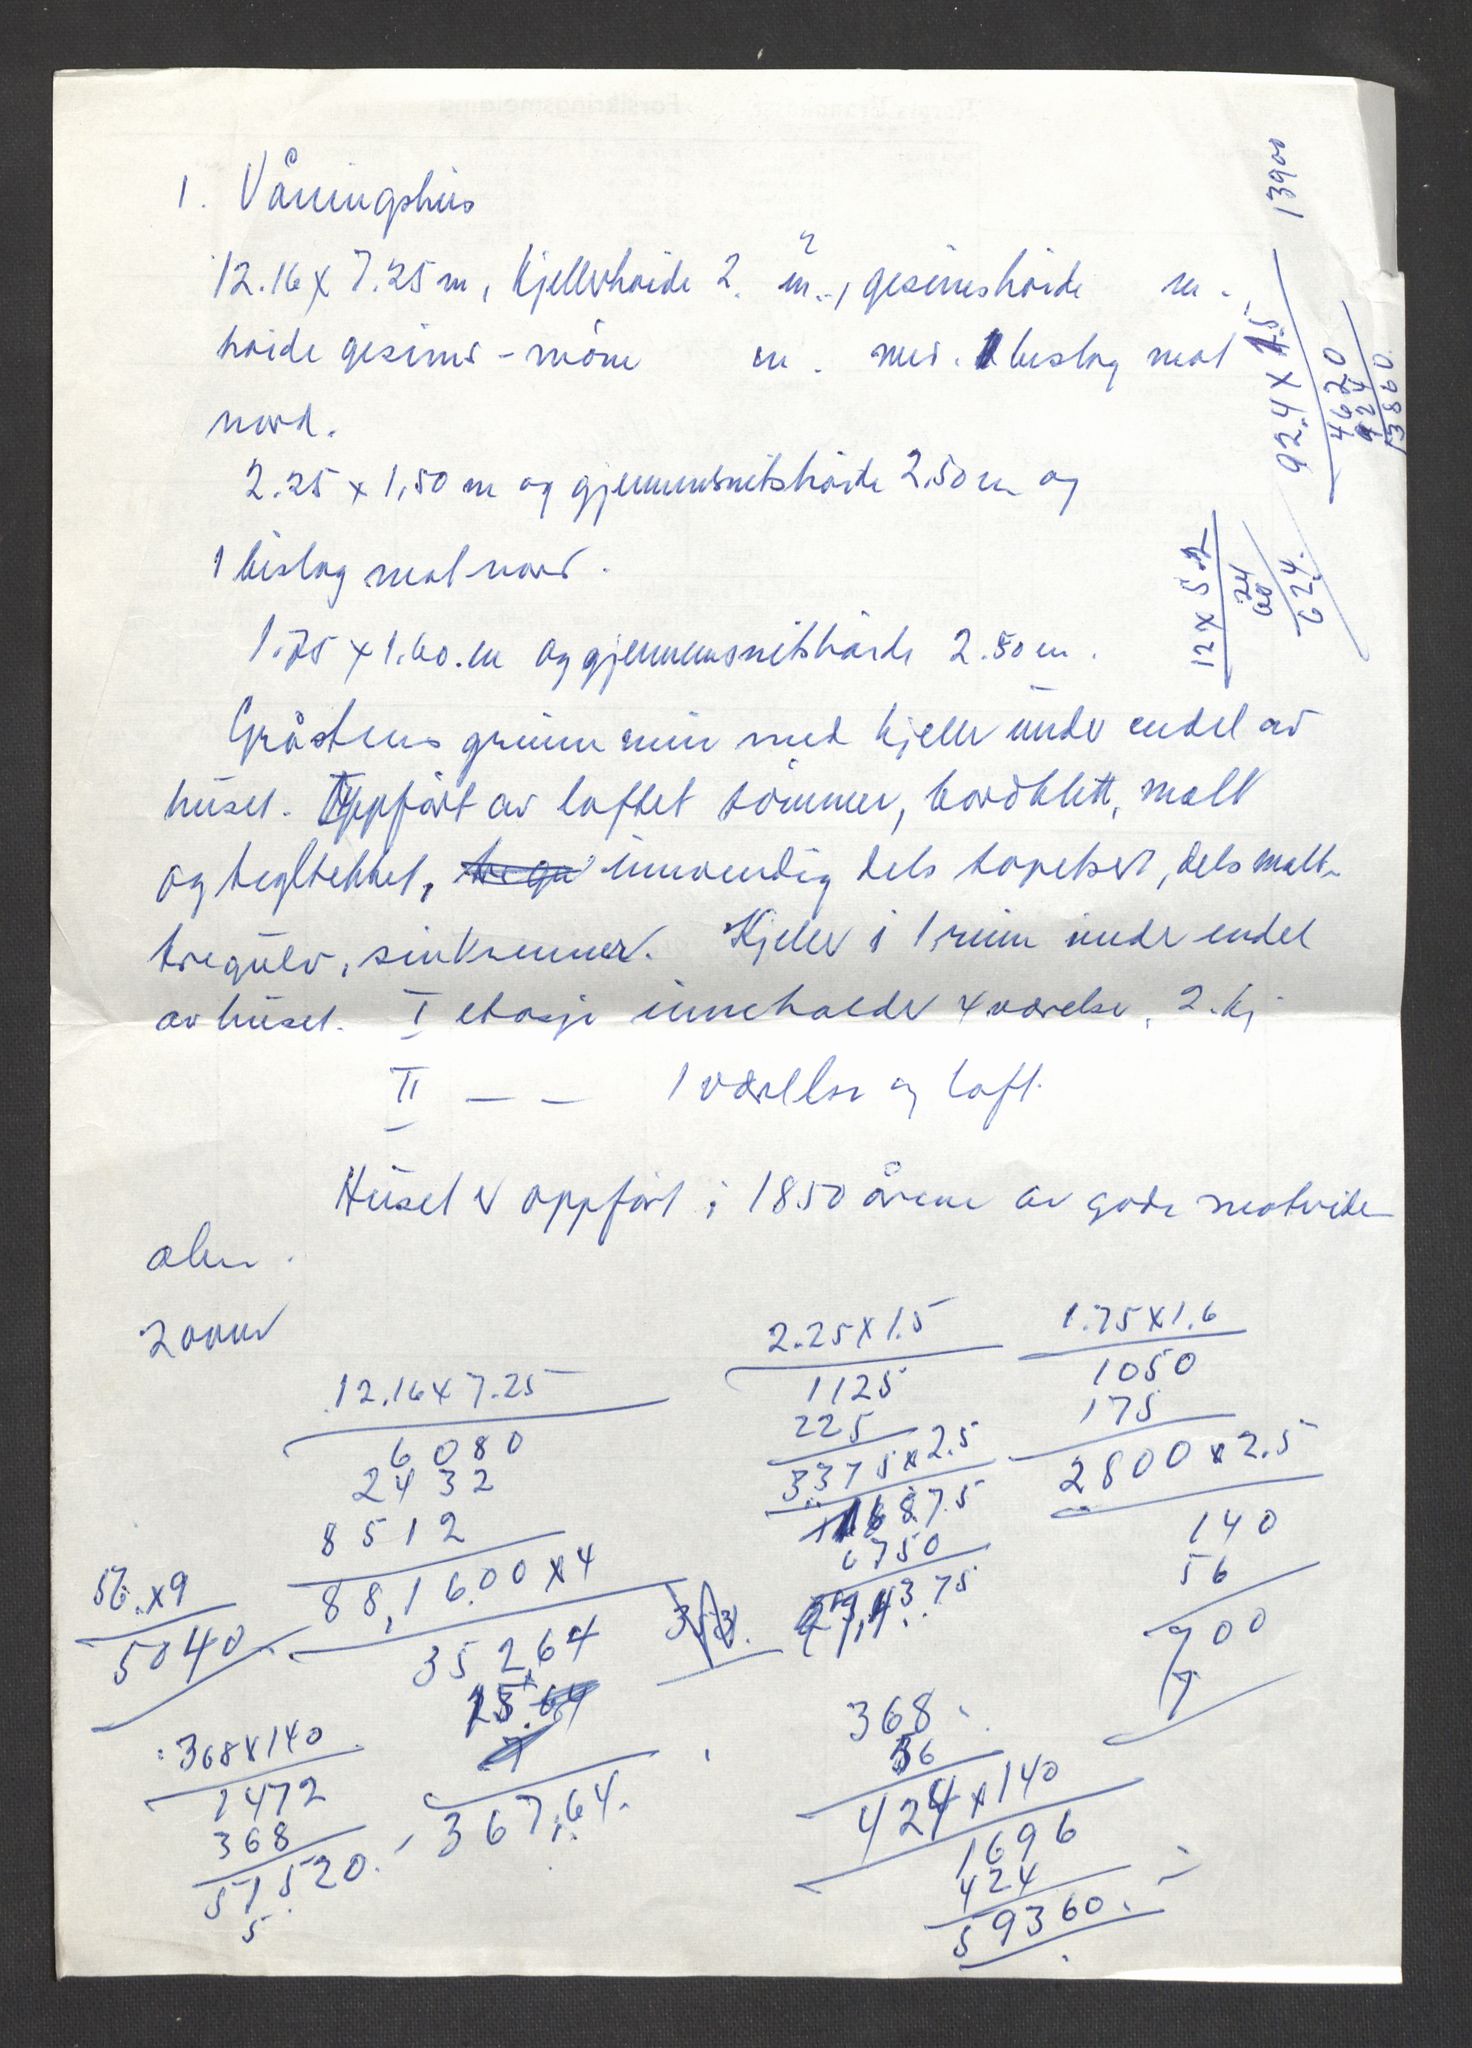 1. Våningshus
12.16 x 7.25 m, kjellerhøide 2. m., gesimshøide m.
høide gesims - møne m. 1 beslag mot
nord.
2.25 x 1,50 m og gjennemsnitshøide 2.50 m og
1 bislag mot nord.
1.75 x 1.60. m og gjennemsnitshøide 2.50 m.
Gråstens grunnmur med kjeller under endel av
huset. Oppført av laftet tømmer, bordklett, malt
og tegltekket, innvendig dels tapetsert, dels malt.
tregulv, sinkrenner. Kjeller i 1 rum under endel
av huset. I etasje inneholder 4 værelse, 2. kj
II — — 1 værelse og loft.
Huset er oppført i 1850 årene av gode
12.16 x 7.25
6080
2432
8512
88,16.00 x 4
352,64
15.
367,64.
2.25 x 1.5
1125
225
3375 x 2.5
1687.5
6750
1.75 x 1.6
1050
175
2800 x 2.5
140
56
700
7
56. x 9
5040
368 x 140
1472
368
51520.
5
368.
56
424 x 140
1696
424
59360.
13900
92.4 x 1.5
4620
924
13860.
12 x 52
24
60
624.